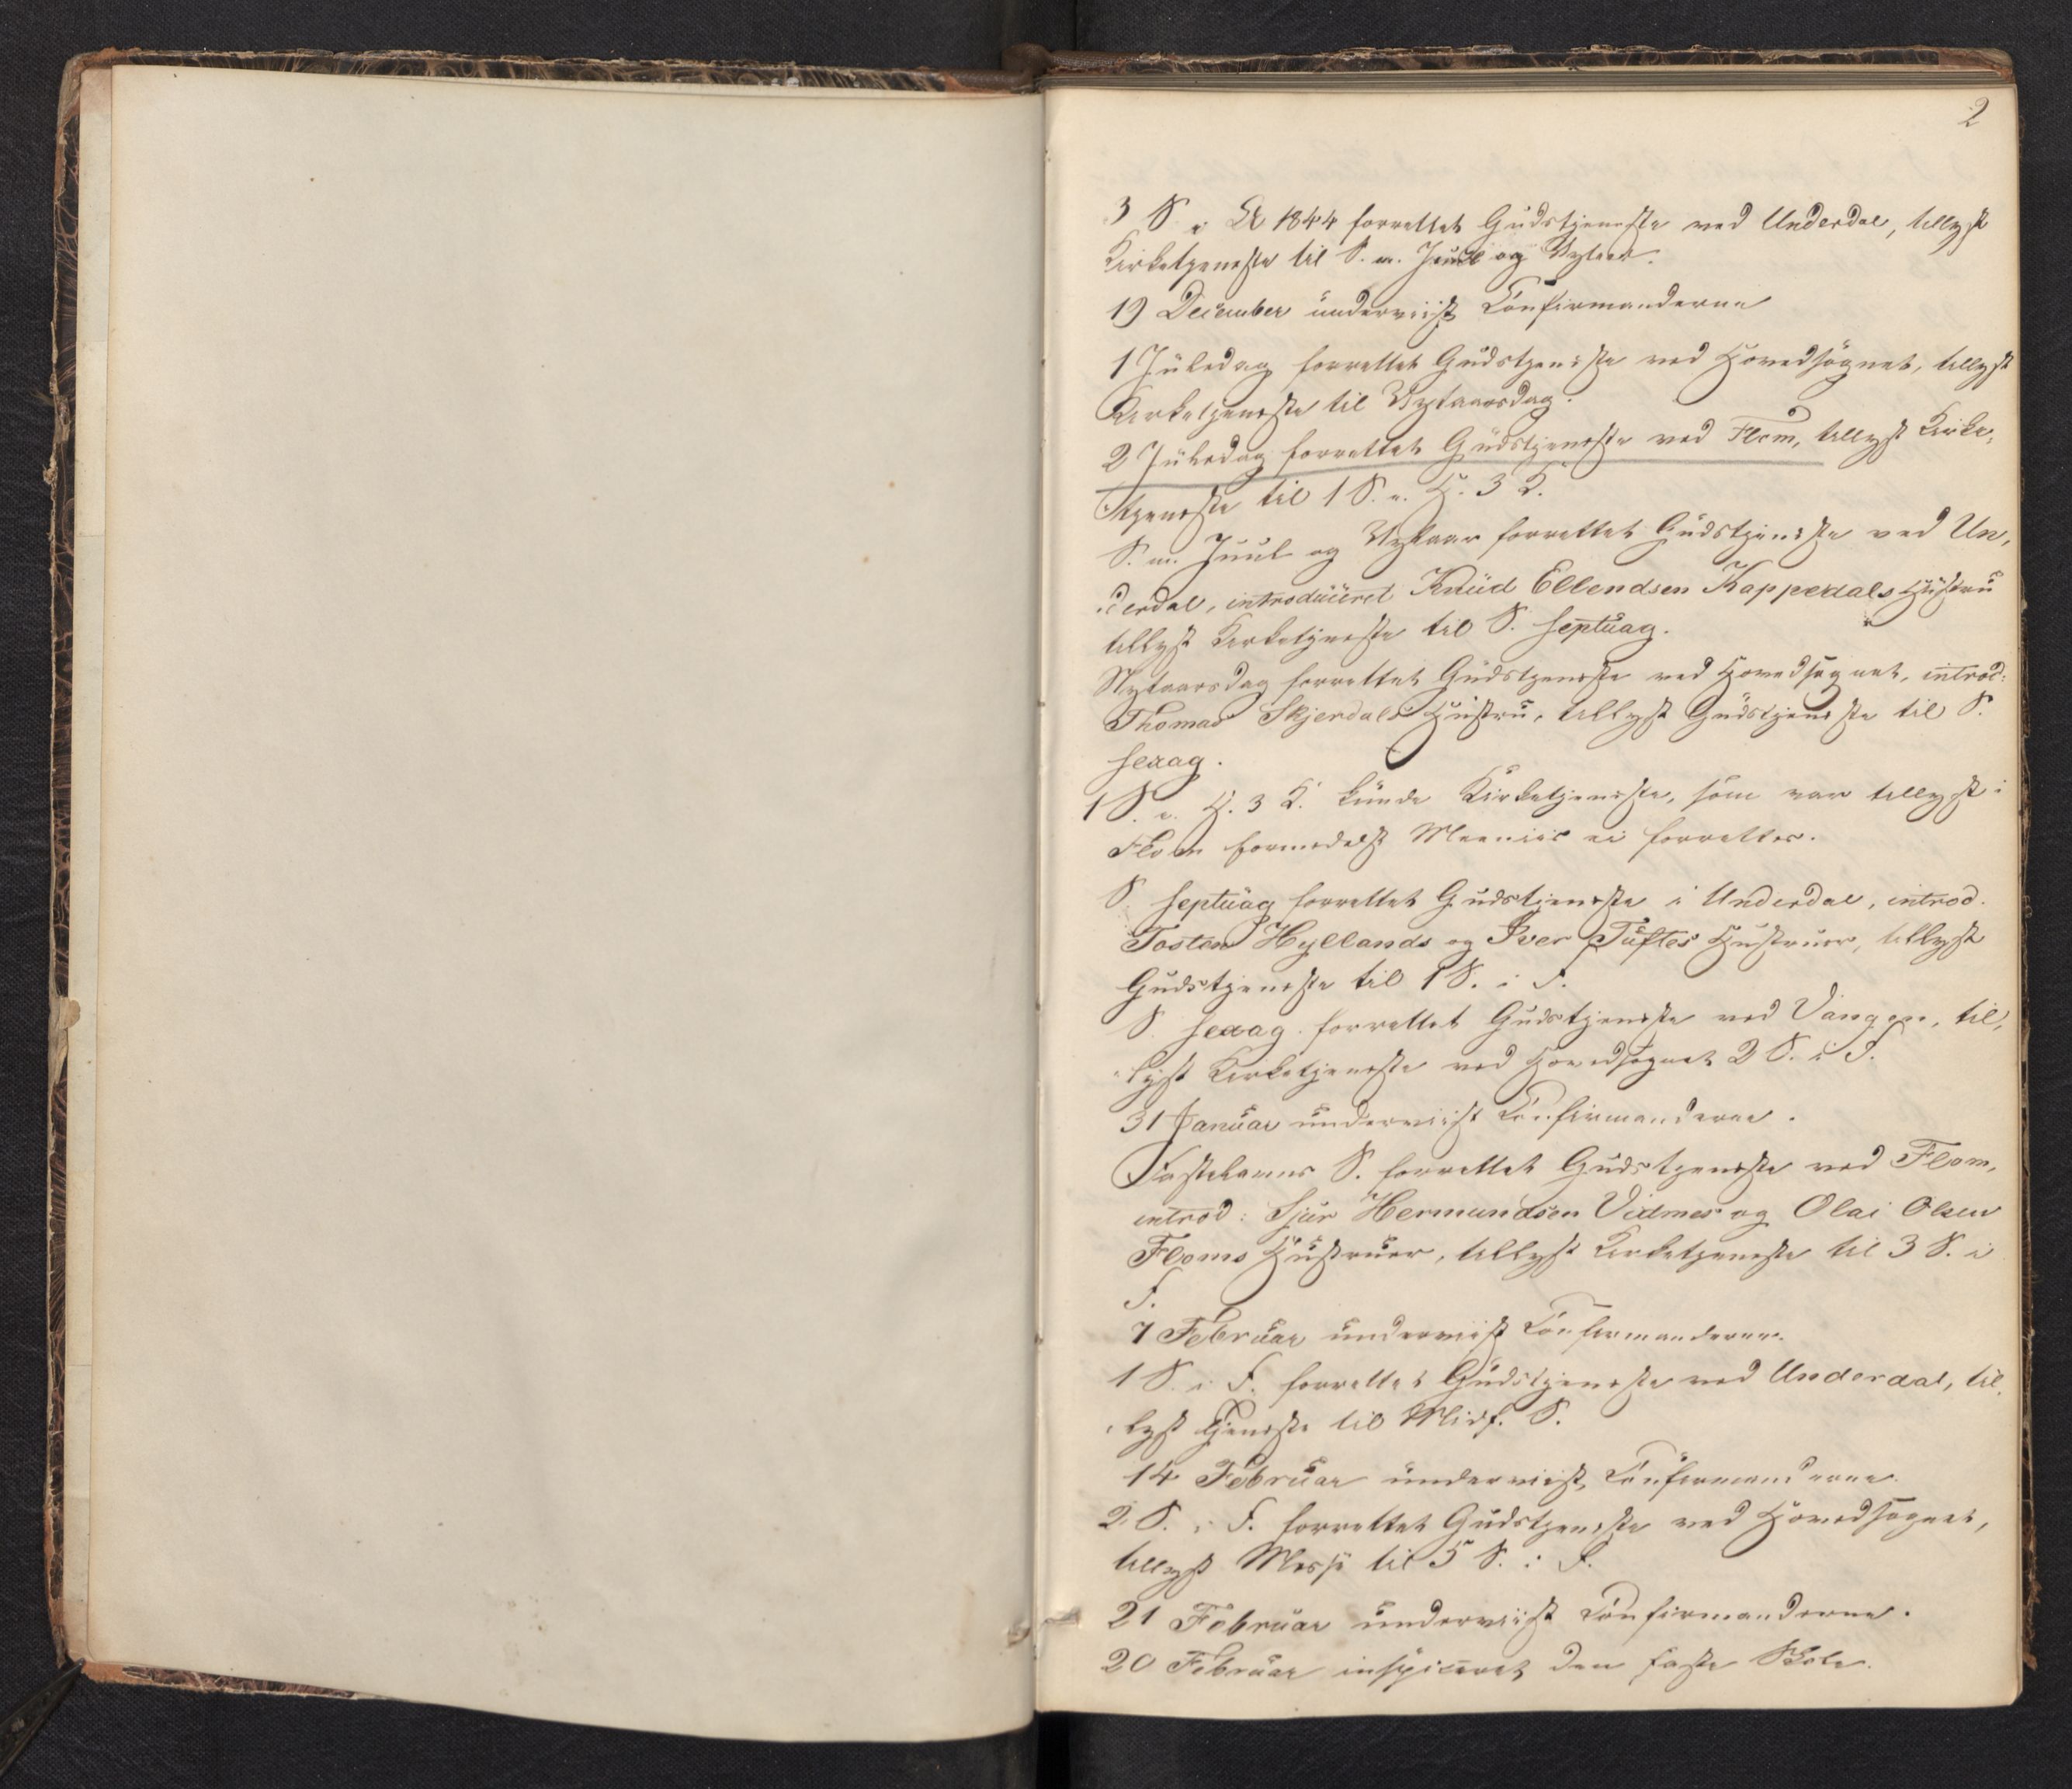 2
3 S. i A. 1844 forrettet Gudstjeneste ved Underdal, tillyst
Kirketjeneste til S. m. Juul og Nytaar.
19 December underviist Confirmanderne
1 Juledag forrettet Gudstjeneste ved Hovedsognet, tillyst
Kirketjeneste til Nytaarsdag.
2 Juledag forrettet Gudstjeneste ved Flom, tillyst Kirke,
tjeneste til 1 S. e. H. 3 K.
S. m. Juul og Nytaar forrettet Gudstjeneste ved Un,
derdal, introduceret Knud Ellendsen Kapperdals Hustru
tillyst Kirketjeneste til S. septuag.
Nytaarsdag forrettet Gudstjeneste ved Hovedsognet, introd:
Thomas Skjerdals Hustru, tillyst Gudstjeneste til S.
sexag.
1 S. e. H. 3 K. kunde Kirketjeneste, som var tillyst i
Flom formedelst Meeniis ei forrettes.
S. septuag forrettet Gudstjeneste i Underdal, introd.
Tosten Hyllands og Iver Tuftes Hustruer, tillyst
Gudstjeneste til 1 S. i F.
S. sexag. forrettet Gudstjeneste ved Vangen, til,
lyst Kirketjeneste ved Hovedsognet 2 S. i F.
31 Januar underviist Confirmanderne.
Fastelavns S. forrettet Gudstjeneste ved Flom,
introd: Sjur Hermundsen Vidmes og Olai Olsen
Floms Hustruer, tillyst Kirketjeneste til 3 S. i
F.
7 Februar underviist Confirmanderne.
1 S. i F. forrettet Gudstjeneste ved Underdal, til,
lyst Tjeneste til Midf. S.
14 Februar underviist Confirmanderne.
2 S. i F. forrettet Gudstjeneste ved Hovedsognet,
tillyst Messe til 5 S. i F.
21 Februar underviist Confirmanderne.
20 Februar inspiceret den faste Skole.